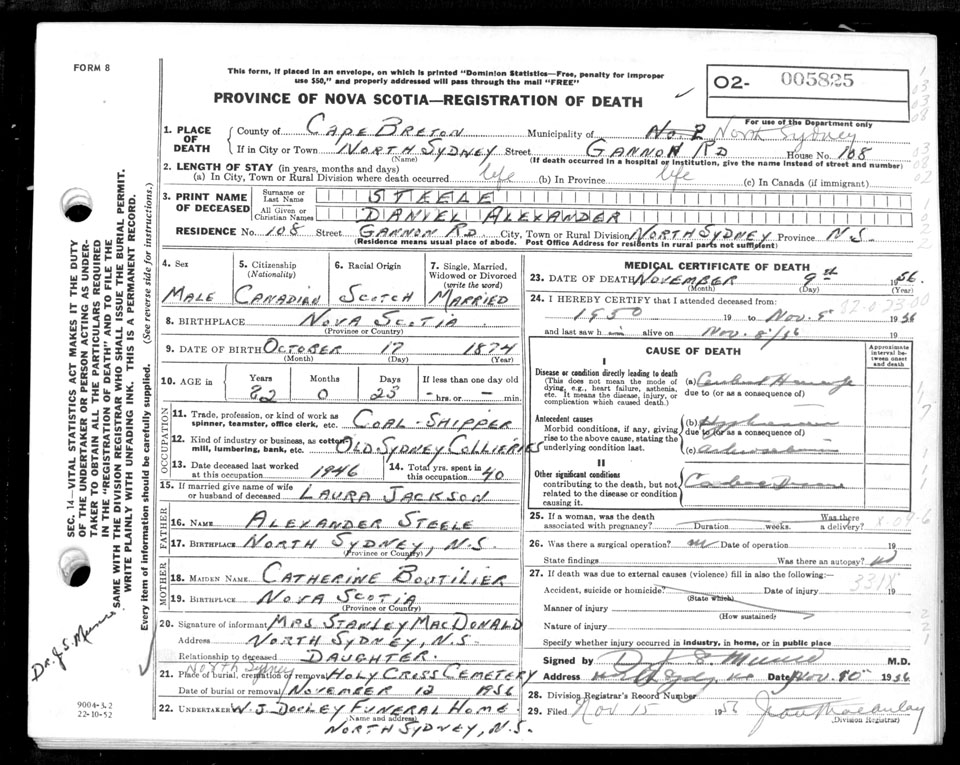 FORM 8
This form, if placed in an envelope, on which is printed "Dominion Statistics—Free, penalty for improper
use $50," and properly addressed will pass through the mail "FREE"
PROVINCE OF NOVA SCOTIA—REGISTRATION OF DEATH
02- 005825
For use of the Department only
1. PLACE OF DEATH
County of CAPE BRETON Municipality of No. 2 North Sydney
If in City or Town NORTH SYDNEY Street GANNON RD House No. 108
(Name) (If death occurred in a hospital or institution, give the name instead of street and number)
2. LENGTH OF STAY (in years, months and days)
(a) In City, Town or Rural Division where death occurred life (b) In Province life (c) In Canada (if immigrant)
3. PRINT NAME OF DECEASED
Surname or Last Name STEELE
All Given or Christian Names DANIEL ALEXANDER
RESIDENCE No. 108 Street GANNON RD City, Town or Rural Division NORTH SYDNEY Province N.S.
(Residence means usual place of abode. Post Office Address for residents in rural parts not sufficient)
4. Sex
MALE
5. Citizenship
(Nationality)
CANADIAN
6. Racial Origin
SCOTCH
7. Single, Married, Widowed or Divorced
(write the word)
MARRIED
8. BIRTHPLACE NOVA SCOTIA
(Province or Country)
9. DATE OF BIRTH OCTOBER 17 1874
(Month) (Day) (Year)
10. AGE in
Years Months Days If less than one day old
82 0 23 - hrs. or - min.
OCCUPATION
11. Trade, profession, or kind of work as
spinner, teamster, office clerk, etc. COAL-SHIPPER
12. Kind of industry or business, as cotton
mill, lumbering, bank, etc. OLD SYDNEY COLLIERIES
13. Date deceased last worked
at this occupation 1946
14. Total yrs. spent in
this occupation 40
15. If married give name of wife
or husband of deceased LAURA JACKSON
FATHER
16. NAME ALEXANDER STEELE
17. BIRTHPLACE NORTH SYDNEY, N.S.
(Province or Country)
MOTHER
18. MAIDEN NAME CATHERINE BOUTILIER
19. BIRTHPLACE NOVA SCOTIA
(Province or Country)
20. Signature of informant MRS. STANLEY MACDONALD
Address NORTH SYDNEY, N.S.
Relationship to deceased DAUGHTER.
North Sydney
21. Place of burial, cremation or removal HOLY CROSS CEMETERY
Date of burial or removal NOVEMBER 12 1956
22. UNDERTAKER W. J. DOOLEY FUNERAL HOME
(Name and address)
NORTH SYDNEY, N.S.
MEDICAL CERTIFICATE OF DEATH
23. DATE OF DEATH NOVEMBER 9th 56
(Month) (Day) (Year)
24. I HEREBY CERTIFY that I attended deceased from:
1950 19 to Nov. 8 1956
and last saw h alive on Nov. 8/56 19
CAUSE OF DEATH
Approximate interval between onset and death
I
Disease or condition directly leading to death
(This does not mean the mode of
dying, e.g., heart failure, asthenia,
etc. It means the disease, injury, or
complication which caused death.)
(a)
due to (or as a consequence of)
Antecedent causes
Morbid conditions, if any, giving
rise to the above cause, stating the
underlying condition last.
(b)
due to (or as a consequence of)
(c)
II
Other significant conditions
contributing to the death, but not
related to the disease or condition
causing it.
25. If a woman, was the death
associated with pregnancy? Duration weeks. Was there
a delivery?
26. Was there a surgical operation? Date of operation 19
State findings Was there an autopsy?
27. If death was due to external causes (violence) fill in also the following:—
3318
Accident, suicide or homicide? Date of injury 19
(State which)
Manner of injury
(How sustained)
Nature of injury
Specify whether injury occurred in industry, in home, or in public place
Signed by M.D.
Address Date Nov. 10 1956
28. Division Registrar's Record Number
29. Filed Nov 15 1956
(Division Registrar)
SEC. 14—VITAL STATISTICS ACT MAKES IT THE DUTY
OF THE UNDERTAKER OR PERSON ACTING AS UNDER-
TAKER TO OBTAIN ALL THE PARTICULARS REQUIRED
IN THE "REGISTRATION OF DEATH" AND TO FILE THE
SAME WITH THE DIVISION REGISTRAR WHO SHALL ISSUE THE BURIAL PERMIT.
WRITE PLAINLY WITH UNFADING INK. THIS IS A PERMANENT RECORD.
Every item of information should be carefully supplied. (See reverse side for instructions.)
9004-3.2
22-10-52